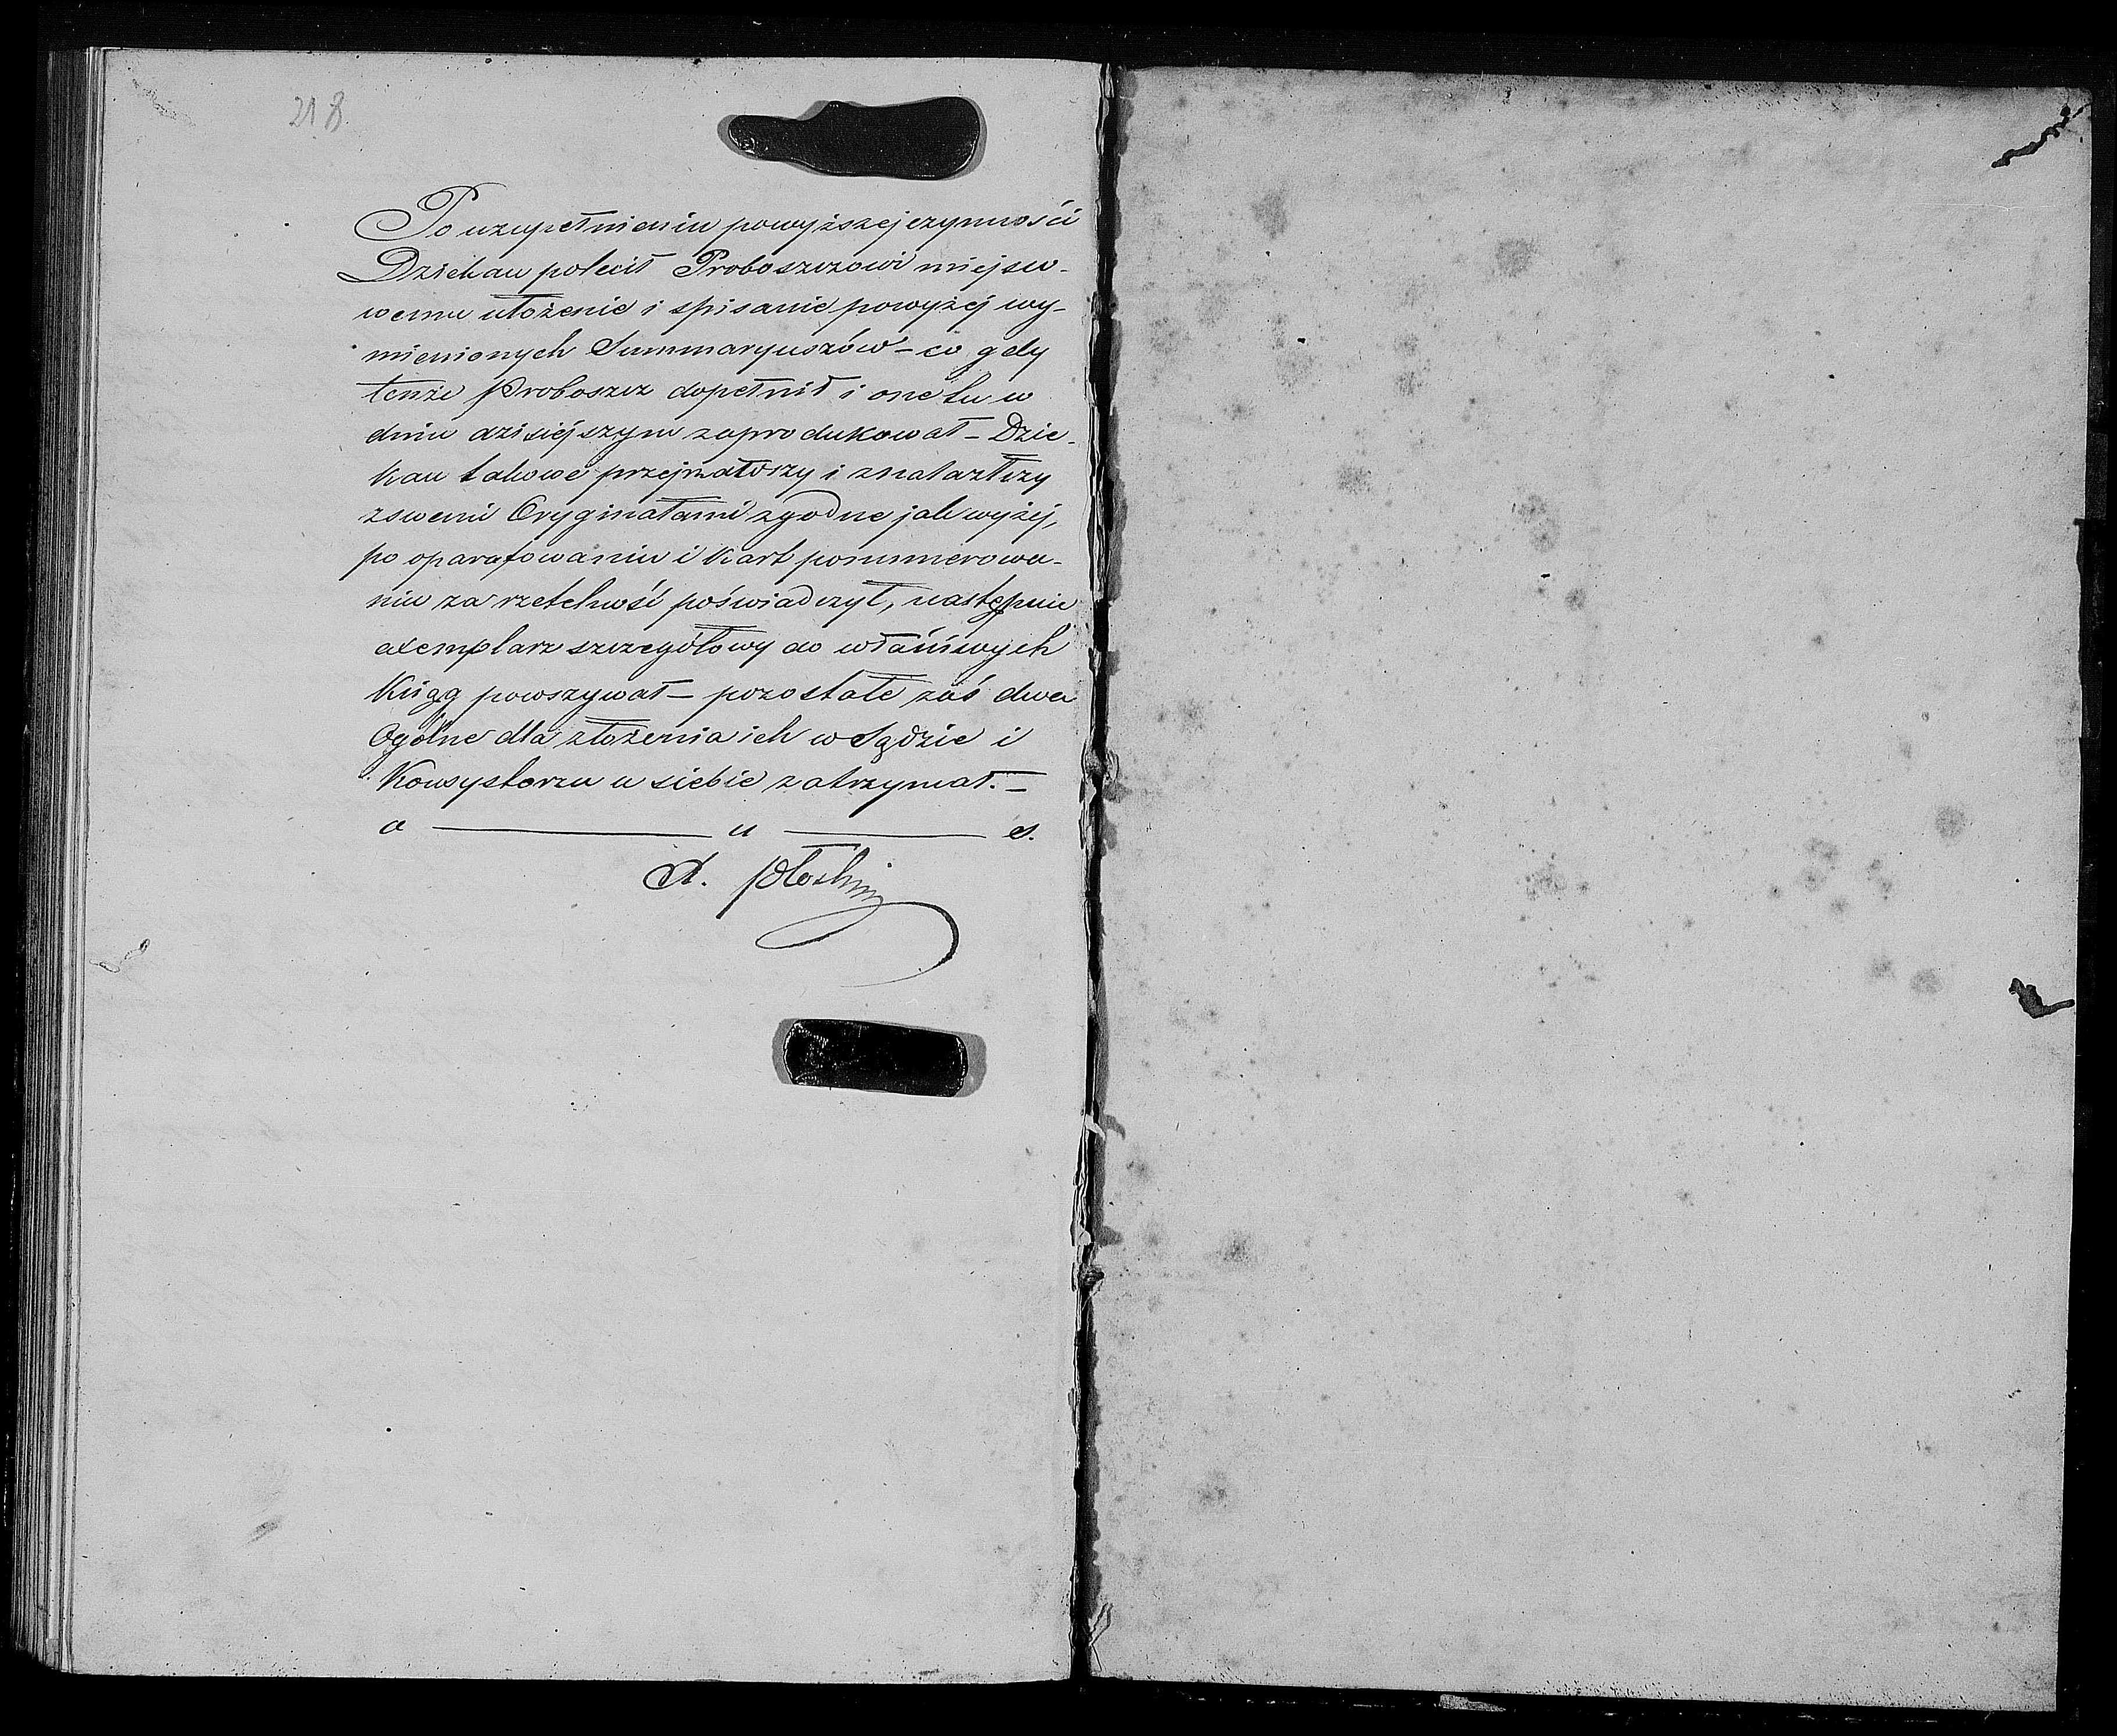 218
Po uzupełnieniu powyższej czynności
Dziekan polecił Proboszczowi miejsco-
wemu ułożenie i spisanie powyżej wy-
mienionych Summaryuszów – co gdy
tenże Proboszcz dopełnił i one tu w
dniu dzisiejszym zaprodukował – Dzie-
kan takowe przejrzawszy i znalazłszy
z swemi Oryginałami zgodne jak wyżej,
po oparafowaniu i kart ponumerowa-
niu za rzetelność poświadczył, następnie
exemplarz szczegółowy do właściwych
Kiągg powszywał – pozostałe zaś dwa
Ogólne dla złożenia ich w Sądzie i
Konsystorzu u siebie zatrzymał. –
a — u — s.